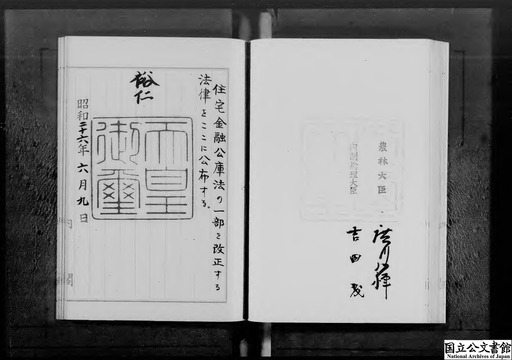 住宅金融公庫法の一部を改正する
法律をここに公布する。
裕仁
天皇御璽
昭和二十六年六月九日
内閣
農林大臣
内閣総理大臣
吉田茂
国立公文書館
National Archives of Japan